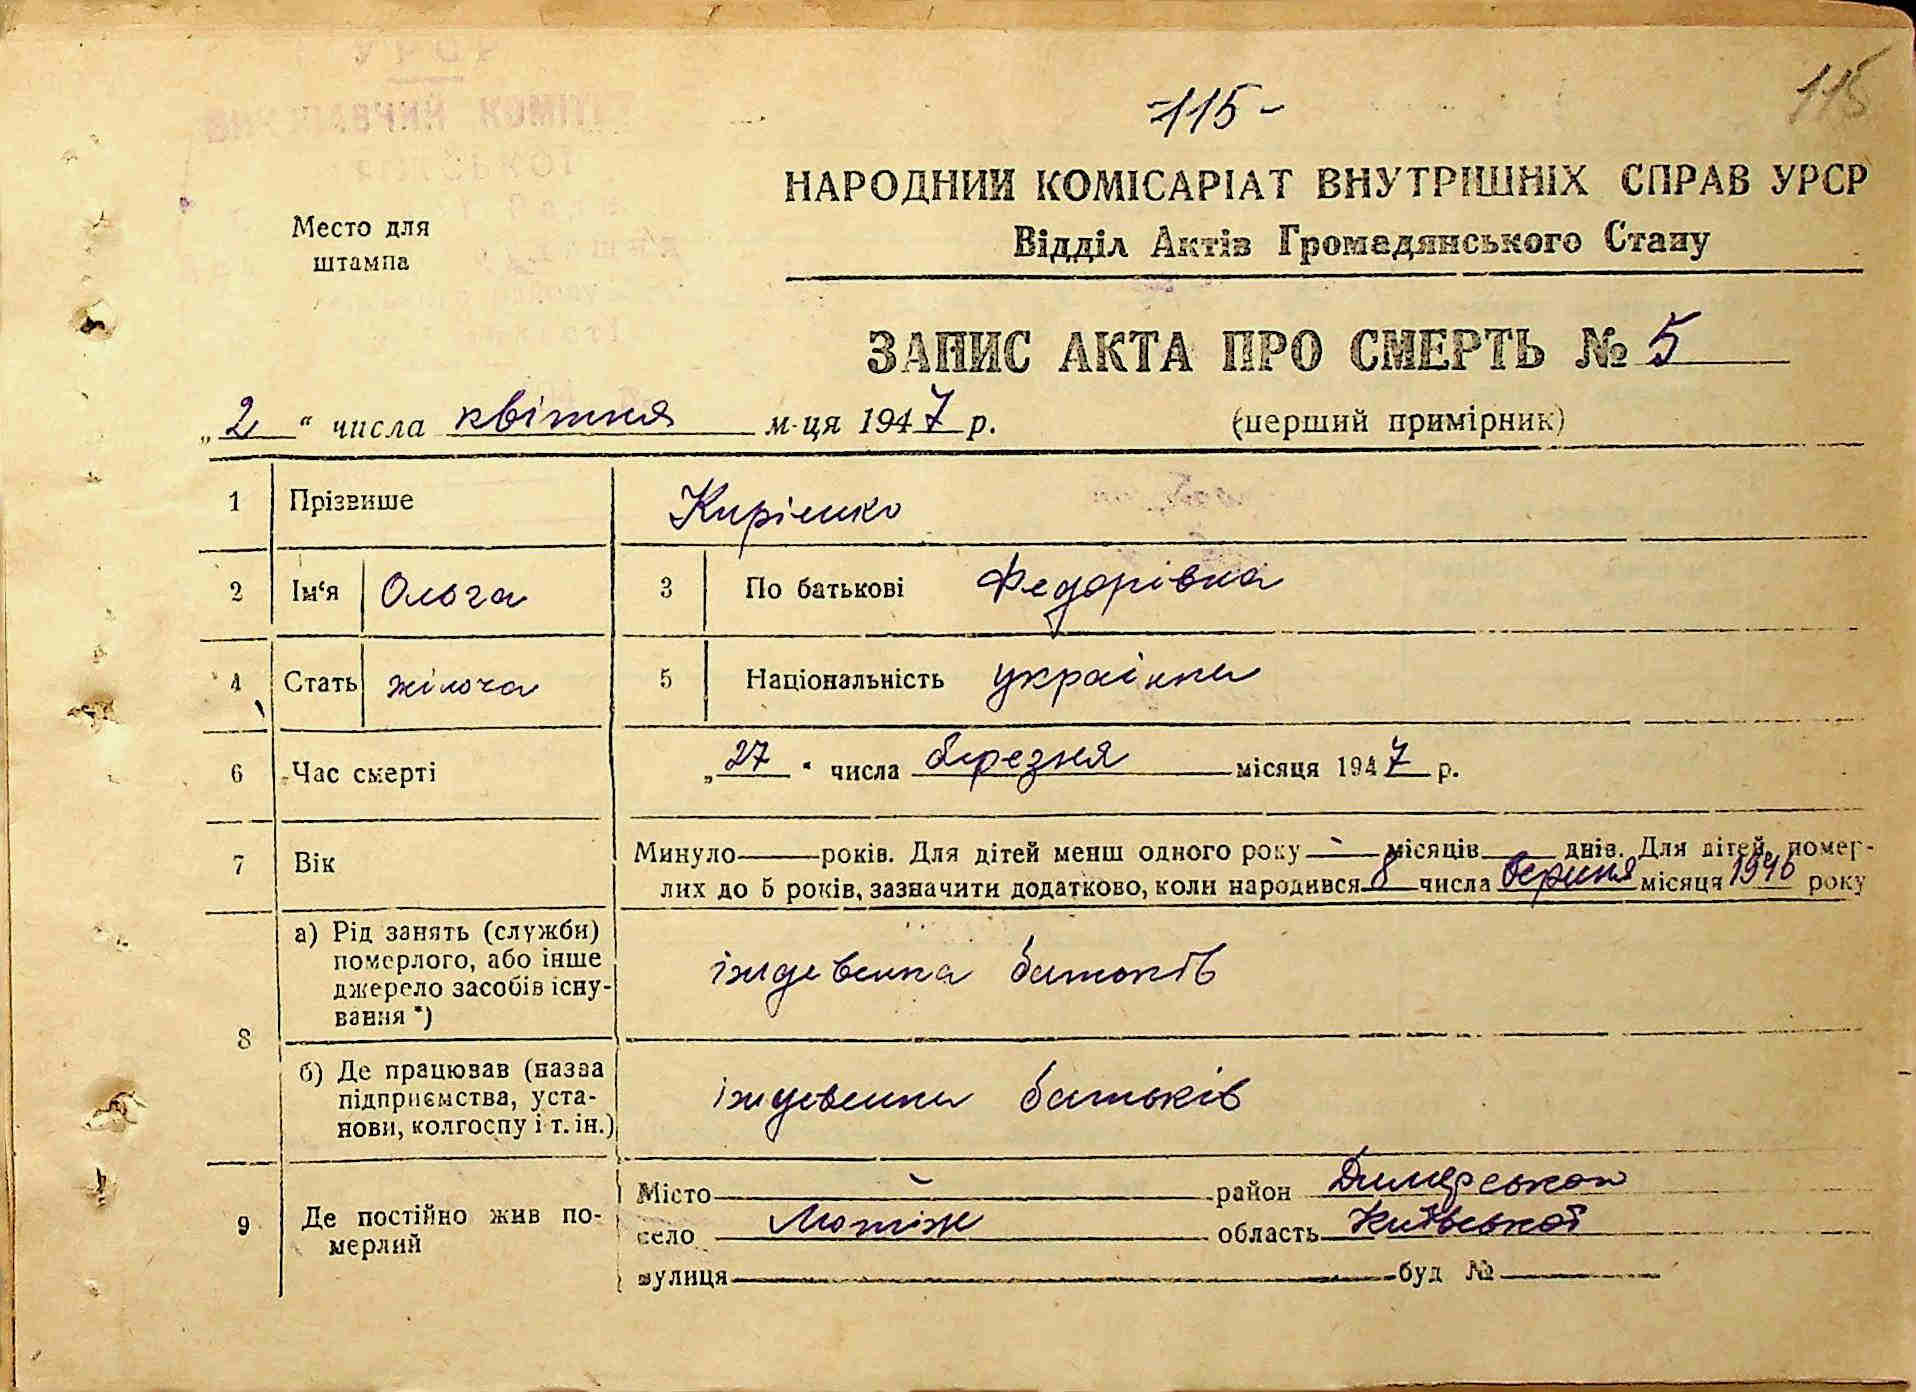 -115-
115
НАРОДНИЙ КОМІСАРІАТ ВНУТРІШНІХ СПРАВ УРСР
Відділ Актів Громадянського Стану
Место для
штампа
ЗАПИС АКТА ПРО СМЕРТЬ № 5
„2“ числа квітня м-ця 1947 р. (перший примірник)
1 Прізвише Кирієнко
2 Ім‘я Ольга 3 По батькові Федорівна
4 Стать жіноча 5 Національність українка
6 Час смерті „27“ числа березня місяця 1947 р.
7 Вік Минуло — років. Для дітей менш одного року — місяців — днів. Для дітей, помер-
лих до 5 років, зазначити додатково, коли народився 8 числа серпня місяця 1946 року
8 а) Рід занять (служби)
померлого, або інше
джерело засобів існу-
вання *) іждевенка батьків
б) Де працював (назва
підприємства, уста-
нови, колгоспу і т. ін.) іждевенка батьків
9 Де постійно жив по-
мерлий
Місто — район Димерського
село Мотіжин область Київської
вулиця буд №